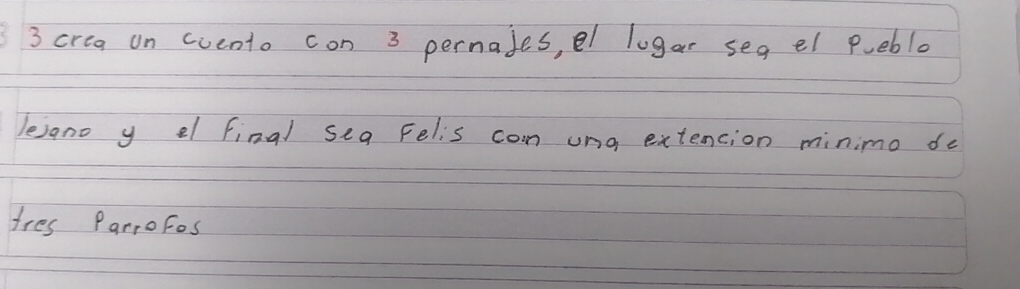 3 crea un cuento con 3 pernajes, el lugar sea el Pueblo
lejano y el final sea Felis con una extencion minimo de
tres Parrofos